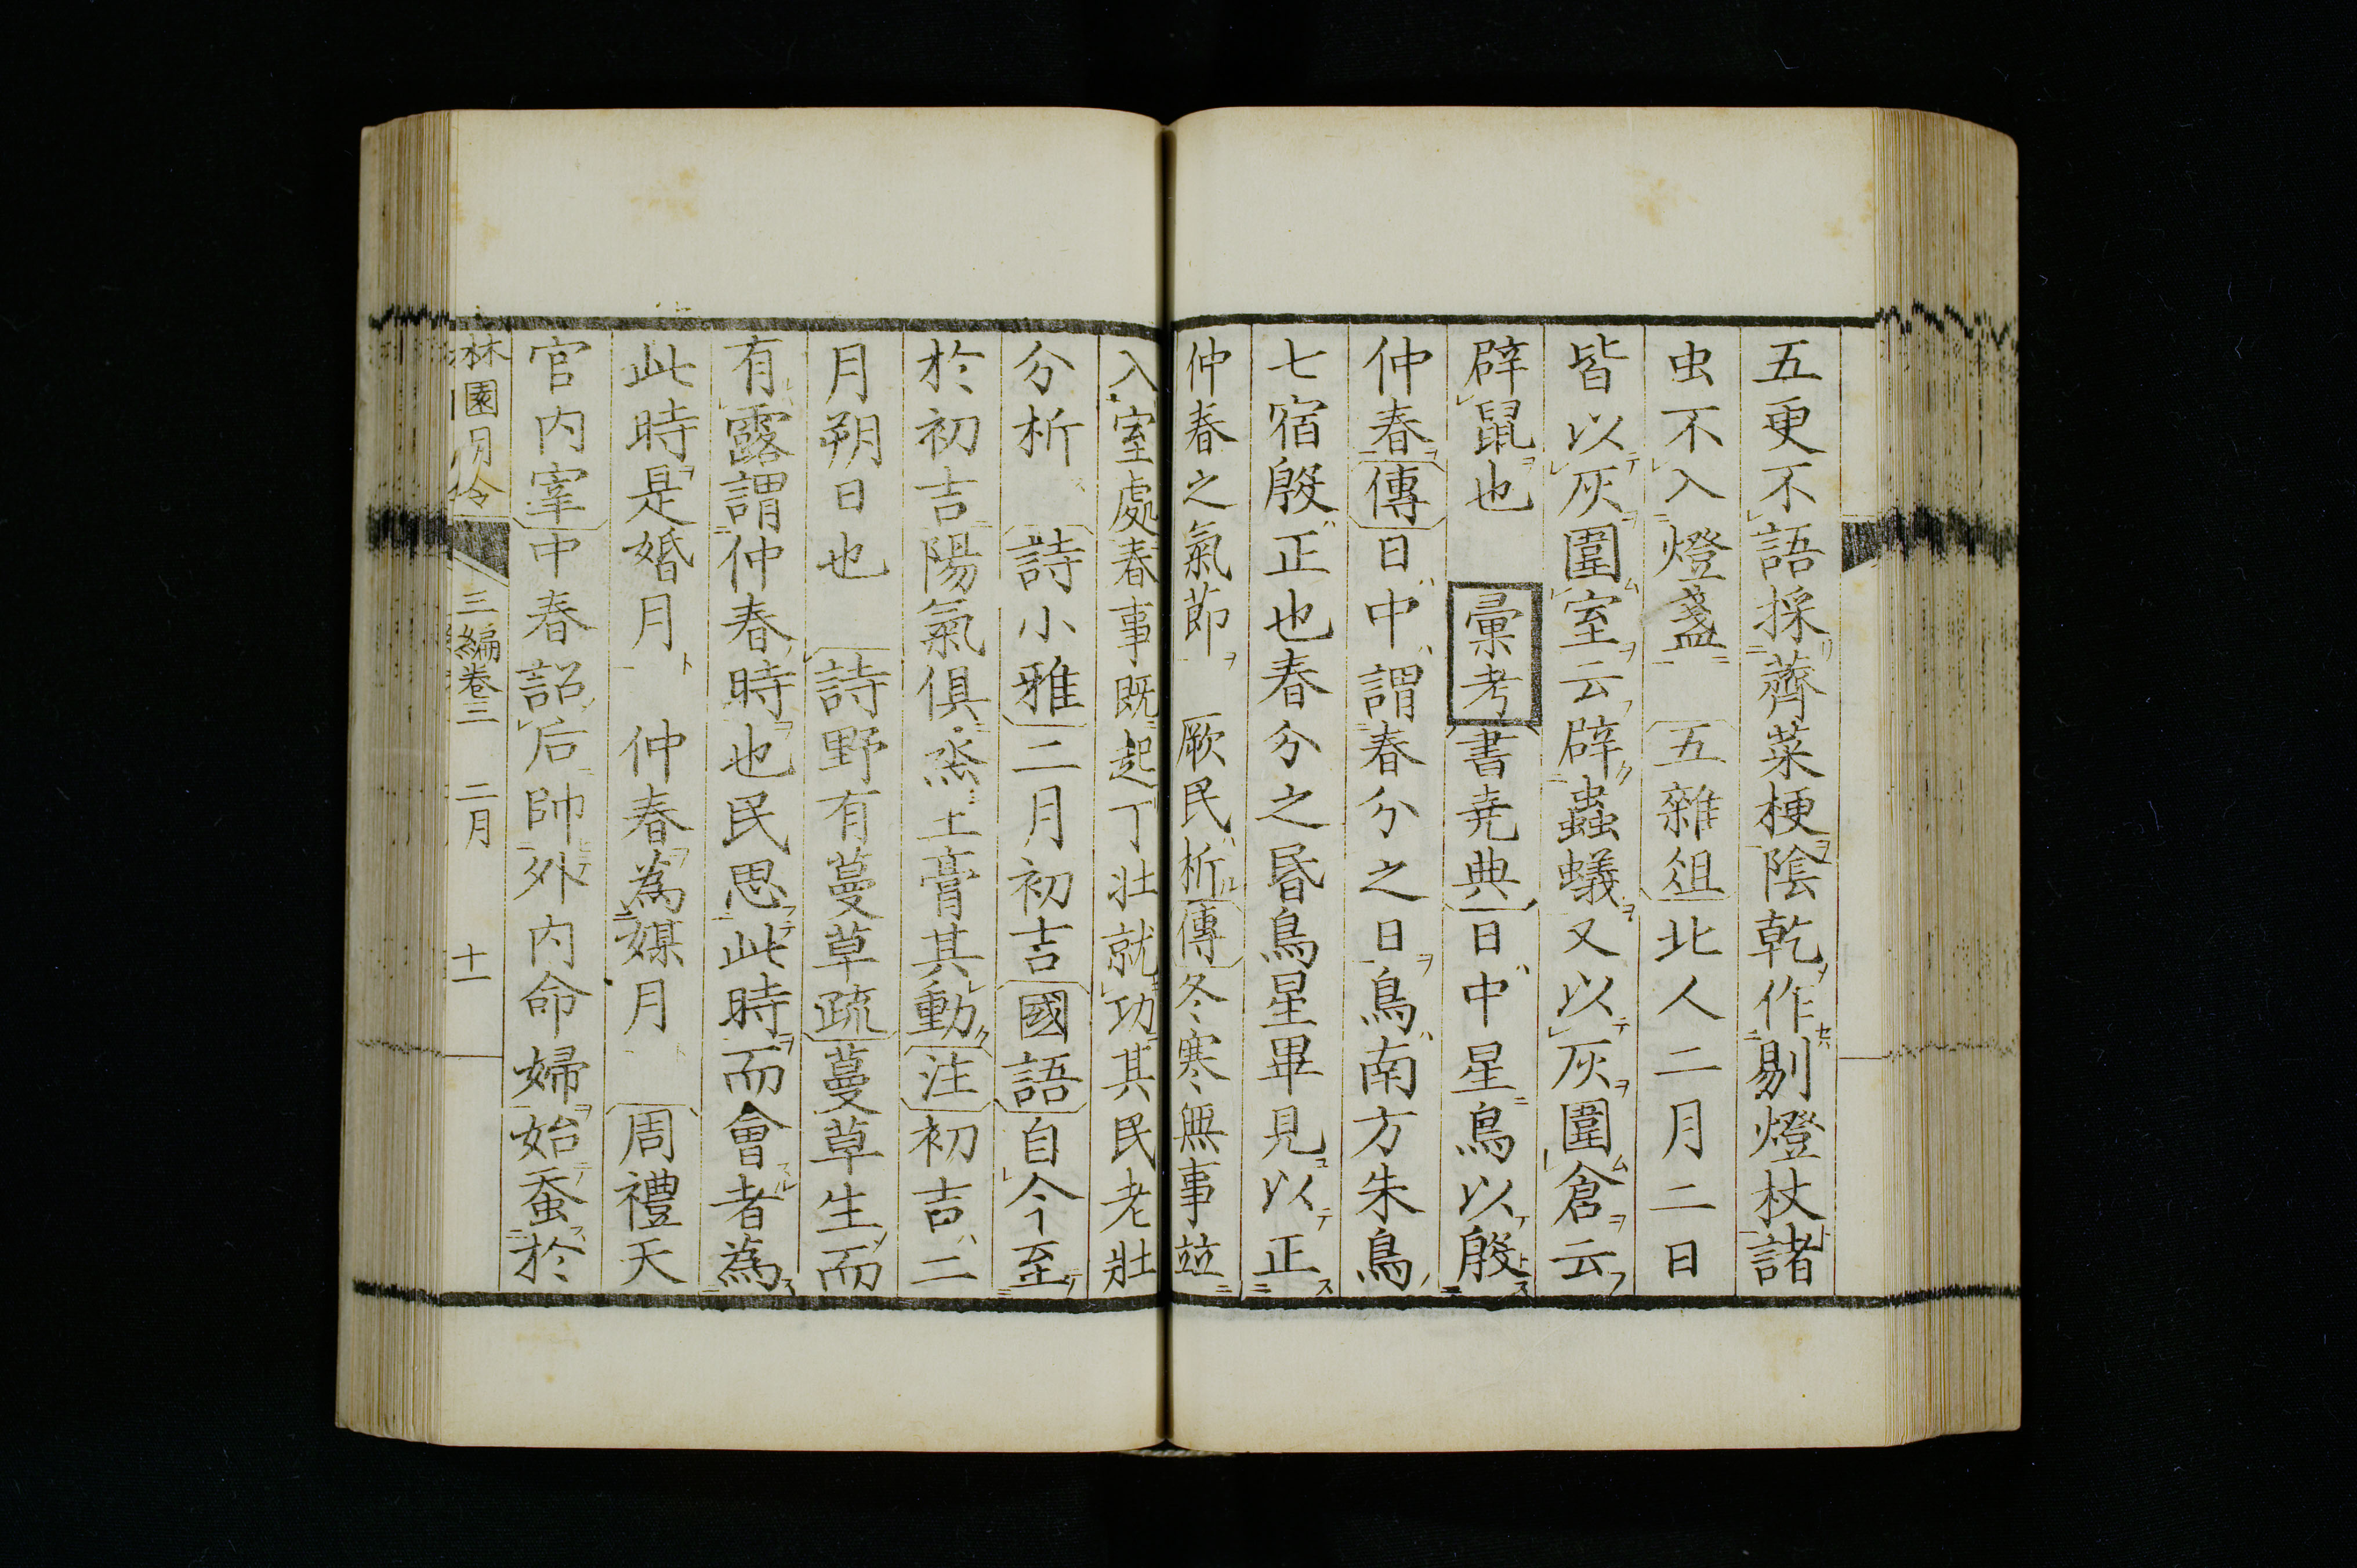 五更不語採薺菜梗陰乾作剔燈杖諸
虫不入燈盞　五雜俎北人二月二日
皆以灰圍室云辟蟲蟻又以灰圍倉云
辟鼠也　彙考書堯典日中星鳥以殷
仲春傳日中謂春分之日鳥南方朱鳥
七宿殷正也春分之昏鳥星畢見以正
仲春之氣節　厥民析傳冬寒無事竝
入室處春事既起丁壯就功其民老壯
分析　詩小雅二月初吉國語自今至
於初吉陽氣俱烝土膏其動注初吉二
月朔日也　詩野有蔓草疏蔓草生而
有露謂仲春時也民思此時而會者為
此時是婚月　仲春為媒月　周禮天
官內宰中春詔后帥外內命婦始蚕於
林園月令　三編卷三　二月　十一